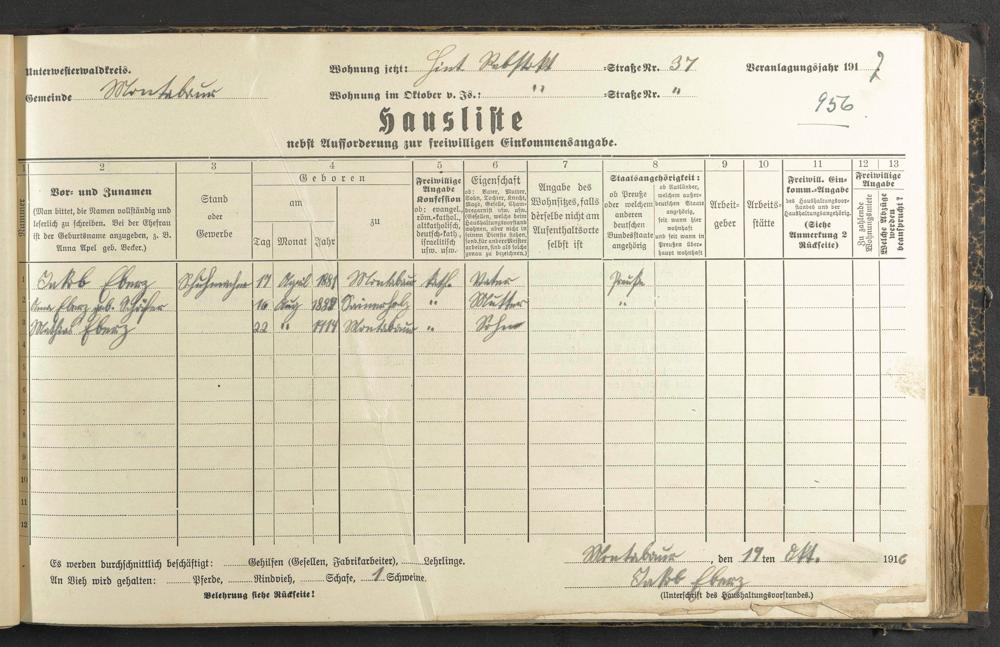 Unterwesterwaldkreis.
Wohnung jetzt: Hint Rebstokt =Straße Nr. 37
Veranlagungsjahr 1917
Gemeinde Montabaur
Wohnung im Oktober v. Js.: " =Straße Nr. "
956
Hausliste
nebst Aufforderung zur freiwilligen Einkommensangabe.
1 2 3 4 5 6 7 8 9 10 11 12 13
Nummer
Vor- und Zunamen
(Man bittet, die Namen vollständig und
leserlich zu schreiben. Bei der Ehefrau
ist der Geburtsname anzugeben, z. B.
Anna Apel geb. Becker.)
Stand
oder
Gewerbe
Geboren
am
zu
Tag Monat Jahr
Freiwillige
Angabe
Konfession
ob: evangel.,
röm.-kathol.,
altkatholisch,
deutsch-kath.,
israelitisch
usw. usw.
Eigenschaft
ob: Vater, Mutter,
Sohn, Tochter, Knecht,
Magd, Geselle, Gehilfe
Angabe des
Wohnsitzes, falls
derselbe nicht am
Aufenthaltsorte
selbst ist
Staatsangehörigkeit:
ob Preuße
oder welchem
anderen
deutschen
Bundesstaate
angehörig
ob Ausländer,
welchem außer-
deutschen Staate
angehörig,
seit wann hier
wohnhaft
und seit wann in
Preußen über-
haupt wohnhaft
Arbeit-
geber
Arbeits-
stätte
Freiwill. Ein-
komm.-Angabe
des Haushaltungsvor-
standes und der
Haushaltungsangehörig.
(Siehe
Anmerkung 2
Rückseite)
Freiwillige
Angabe
Zu zahlende
Wohnungsmiete
Welche Abzüge
werden
beansprucht?
1 Jakob Eberz Schuhmacher 17 April 1881 Montabaur kath. Vater Preuße
2 Anna Eberz geb. Schäfer 16 Aug Sainerholz " Mutter "
3 Mathias Eberz 22 " 1914 Montabaur " Sohn
4
5
6
7
8
9
10
11
12
Es werden durchschnittlich beschäftigt: Gehilfen (Gesellen, Fabrikarbeiter), Lehrlinge.
An Vieh wird gehalten: Pferde, Rindvieh, Schafe, 1 Schweine.
Belehrung siehe Rückseite!
Montabaur, den 19 ten Okt. 1916
Jakob Eberz
(Unterschrift des Haushaltungsvorstandes.)